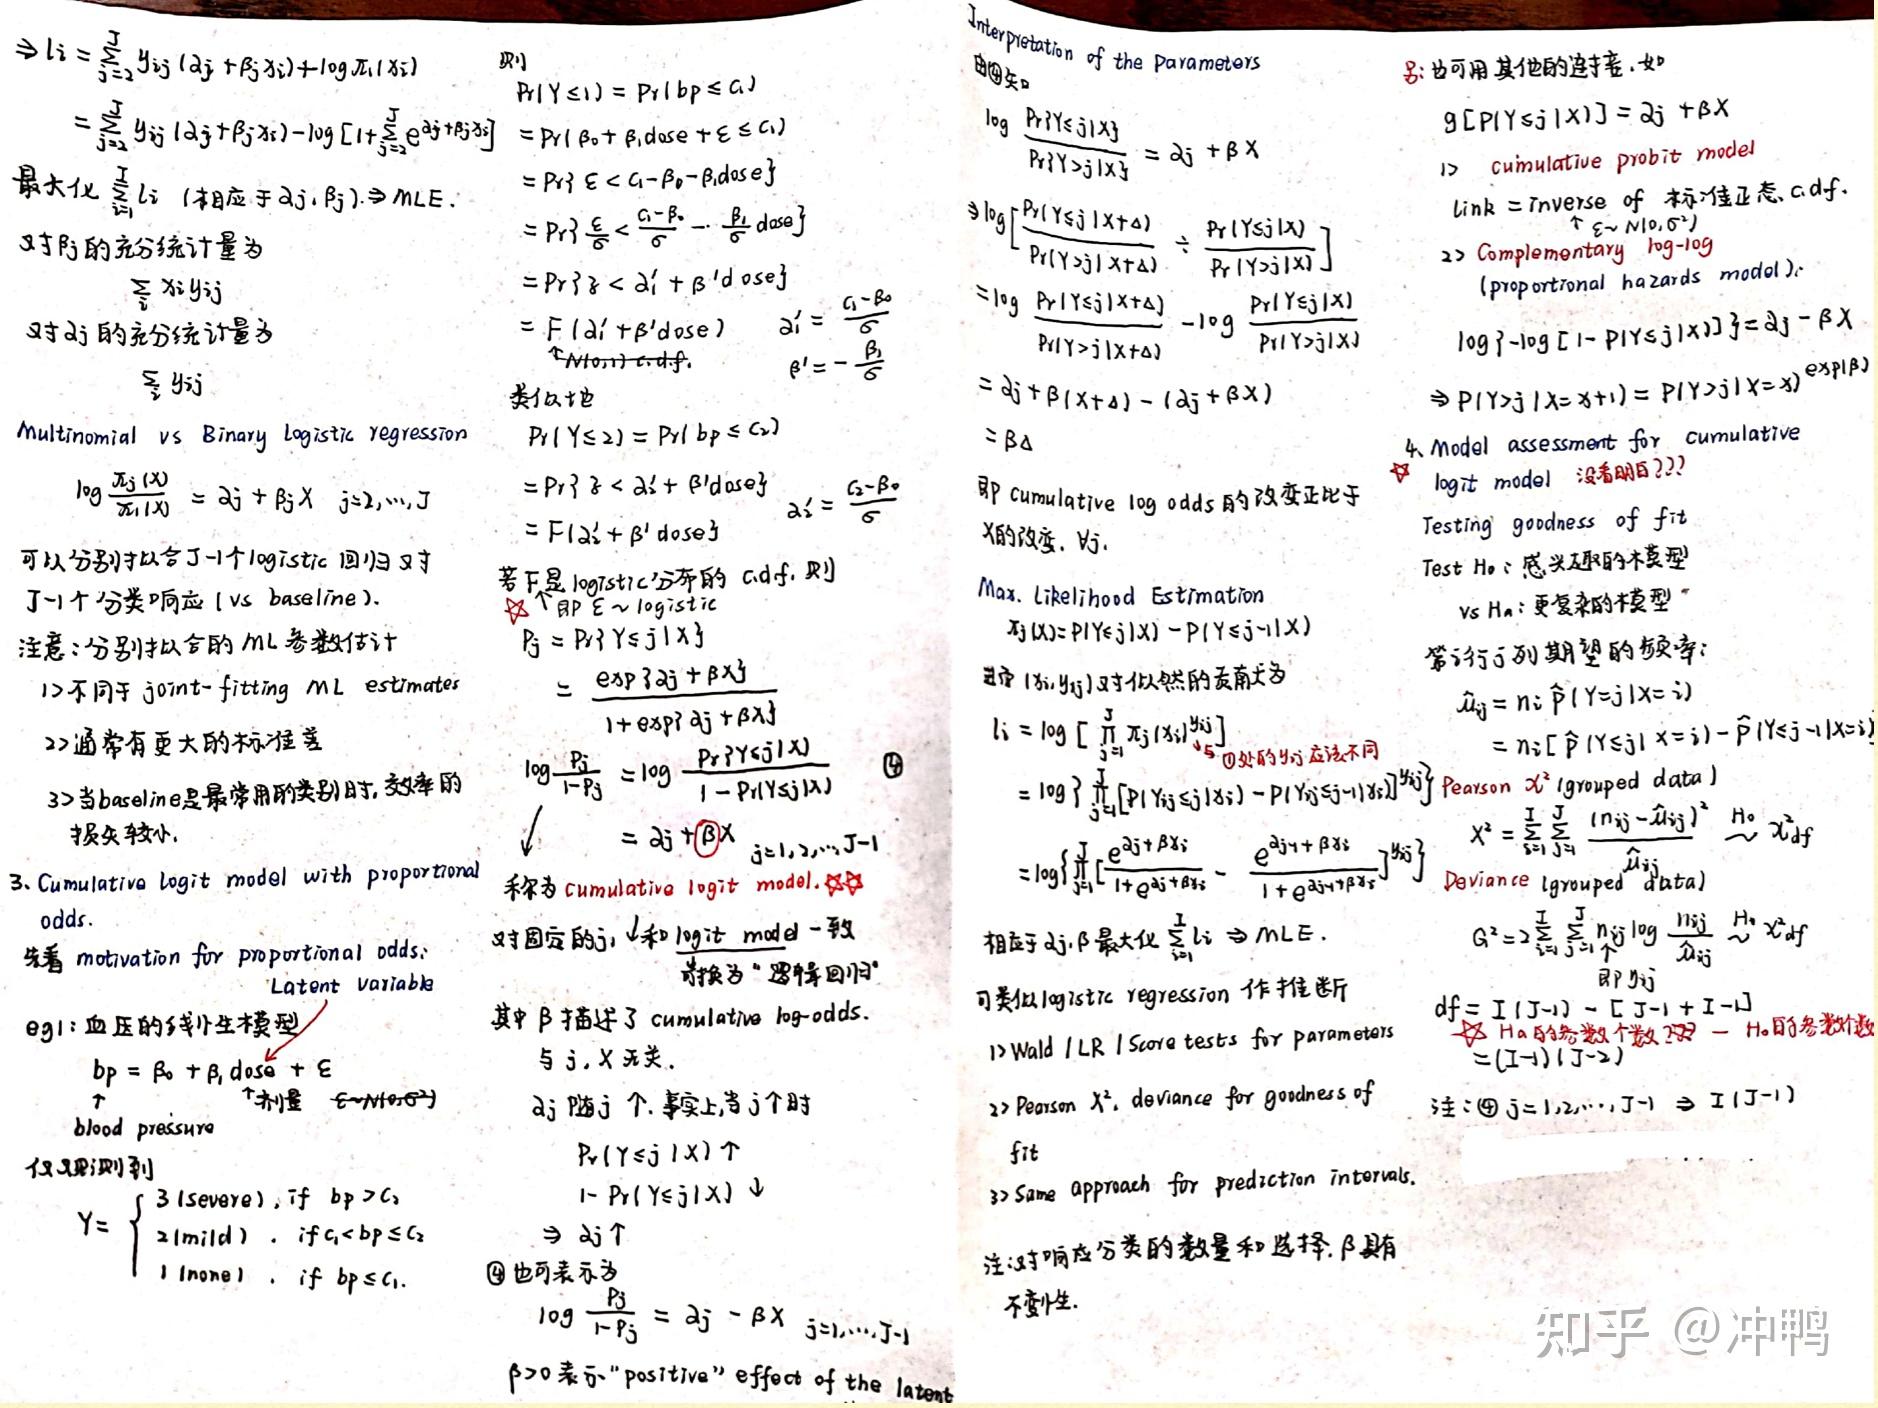 ⇒ li = Σ_{j=2}^{J} yij (αj + βj xi) + log π1(xi)
= Σ_{j=2}^{J} yij (αj + βj xi) − log [1 + Σ_{j=2}^{J} e^{αj + βj xi}]
最大化 Σ_{i=1}^{I} li (相应于 αj, βj). ⇒ MLE.
对 βj 的充分统计量为
Σ_i xi yij
对 αj 的充分统计量为
Σ_i yij
Multinomial vs Binary Logistic regression
log πj(X)/π1(X) = αj + βj X j=2,…,J
可以分别拟合 J-1个 logistic 回归对
J-1个分类响应 (vs baseline).
注意:分别拟合的 ML 参数估计
1> 不同于 joint-fitting ML estimates
2> 通常有更大的标准差
3> 当baseline是最常用的类别时,效率的
损失较小.
3. Cumulative Logit model with proportional
odds.
先看 motivation for proportional odds:
Latent variable
eg1: 血压的线性模型
bp = β0 + β1 dose + ε
↑剂量 ε~N(0,σ²)
↑
blood pressure
仅观测到
Y = { 3 (severe), if bp > c2
2 (mild) . if c1 < bp ≤ c2
1 (none) . if bp ≤ c1.
则
Pr(Y ≤ 1) = Pr(bp ≤ c1)
= Pr(β0 + β1 dose + ε ≤ c1)
= Pr{ε < c1 − β0 − β1 dose}
= Pr{ε/σ < (c1−β0)/σ − β1/σ dose}
= Pr{z < α1' + β' dose}
= F(α1' + β' dose) α1' = (c1−β0)/σ
↑N(0,1) c.d.f. β' = −β1/σ
类似地
Pr(Y ≤ 2) = Pr(bp ≤ c2)
= Pr{z < α2' + β' dose} α2' = (c2−β0)/σ
= F(α2' + β' dose}
若 F 是 logistic 分布的 c.d.f. 则
☆ ↑即 ε ~ logistic
Pj = Pr{Y ≤ j|X}
= exp{αj + βX} / 1 + exp{αj + βX}
log Pj/1−Pj = log Pr{Y≤j|X} / 1 − Pr(Y≤j|X) ④
= αj + βX j=1,2,…,J−1
称为 cumulative logit model. ☆☆
对固定的j, ↓和 logit model 一致
替换为“逻辑回归”
其中 β 描述了 cumulative log-odds.
与 j, X 无关.
αj 随 j ↑. 事实上,当 j↑时
Pr(Y ≤ j | X) ↑
1 − Pr(Y ≤ j|X) ↓
⇒ αj ↑
④ 也可表示为
log Pj/1−Pj = αj − βX j=1,…,J−1
β>0 表示 “positive” effect of the latent
Interpretation of the Parameters
由④知
log Pr{Y≤j|X} / Pr{Y>j|X} = αj + βX
⇒ log [ Pr(Y≤j|X+Δ) / Pr(Y>j|X+Δ) ÷ Pr(Y≤j|X) / Pr(Y>j|X) ]
= log Pr(Y≤j|X+Δ) / Pr(Y>j|X+Δ) − log Pr(Y≤j|X) / Pr(Y>j|X)
= αj + β(X+Δ) − (αj + βX)
= βΔ
即 cumulative log odds 的改变正比于
X的改变. ∀j.
Max. Likelihood Estimation
πj(X) = P(Y≤j|X) − P(Y≤j−1|X)
(xi, yij) 对似然的贡献为
li = log [ Π_{j=1}^{J} πj(xi)^{yij} ]
①处的yij 应该不同
= log { Π_{j=1}^{J} [P(Yij≤j|xi) − P(Yij≤j−1|xi)]^{yij} }
= log { Π_{j=1}^{J} [ e^{αj+βxi} / 1+e^{αj+βxi} − e^{αj-1+βxi} / 1+e^{αj-1+βxi} ]^{yij} }
相应于 αj, β 最大化 Σ_{i=1}^{I} li ⇒ MLE.
可类似 logistic regression 作推断
1> Wald / LR / Score tests for parameters
2> Pearson X², deviance for goodness of
fit
3> Same approach for prediction intervals.
注:对响应分类的数量和选择, β具有
不变性.
另: 也可用其他的连接, 如
g[P(Y≤j|X)] = αj + βX
1> cumulative probit model
Link = inverse of 标准正态 c.d.f.
↑ ε~N(0,σ²)
2> Complementary log-log
(proportional hazards model):
log{−log [1 − P(Y≤j|X)]} = αj − βX
⇒ P(Y>j|X=x+1) = P(Y>j|X=x)^{exp(β)}
4. Model assessment for cumulative
☆ logit model 没看明白???
Testing goodness of fit
Test H0: 感兴趣的模型
vs Ha: 更复杂的模型
第i行j列期望的频率:
μ̂ij = ni p̂(Y=j|X=i)
= ni[p̂(Y≤j|X=i) − p̂(Y≤j−1|X=i)
Pearson χ² (grouped data)
X² = Σ_{i=1}^{I} Σ_{j=1}^{J} (nij − μ̂ij)² / μ̂ij ~H0 χ²df
Deviance (grouped data)
G² = 2 Σ_{i=1}^{I} Σ_{j=1}^{J} nij log nij/μ̂ij ~H0 χ²df
↑即 yij
df = I(J−1) − [J−1 + I−1]
☆ Ha的参数个数??? − H0的参数个数
= (I−1)(J−2)
注: ④ j=1,2,…,J−1 ⇒ I(J−1)
知乎 @冲鸭